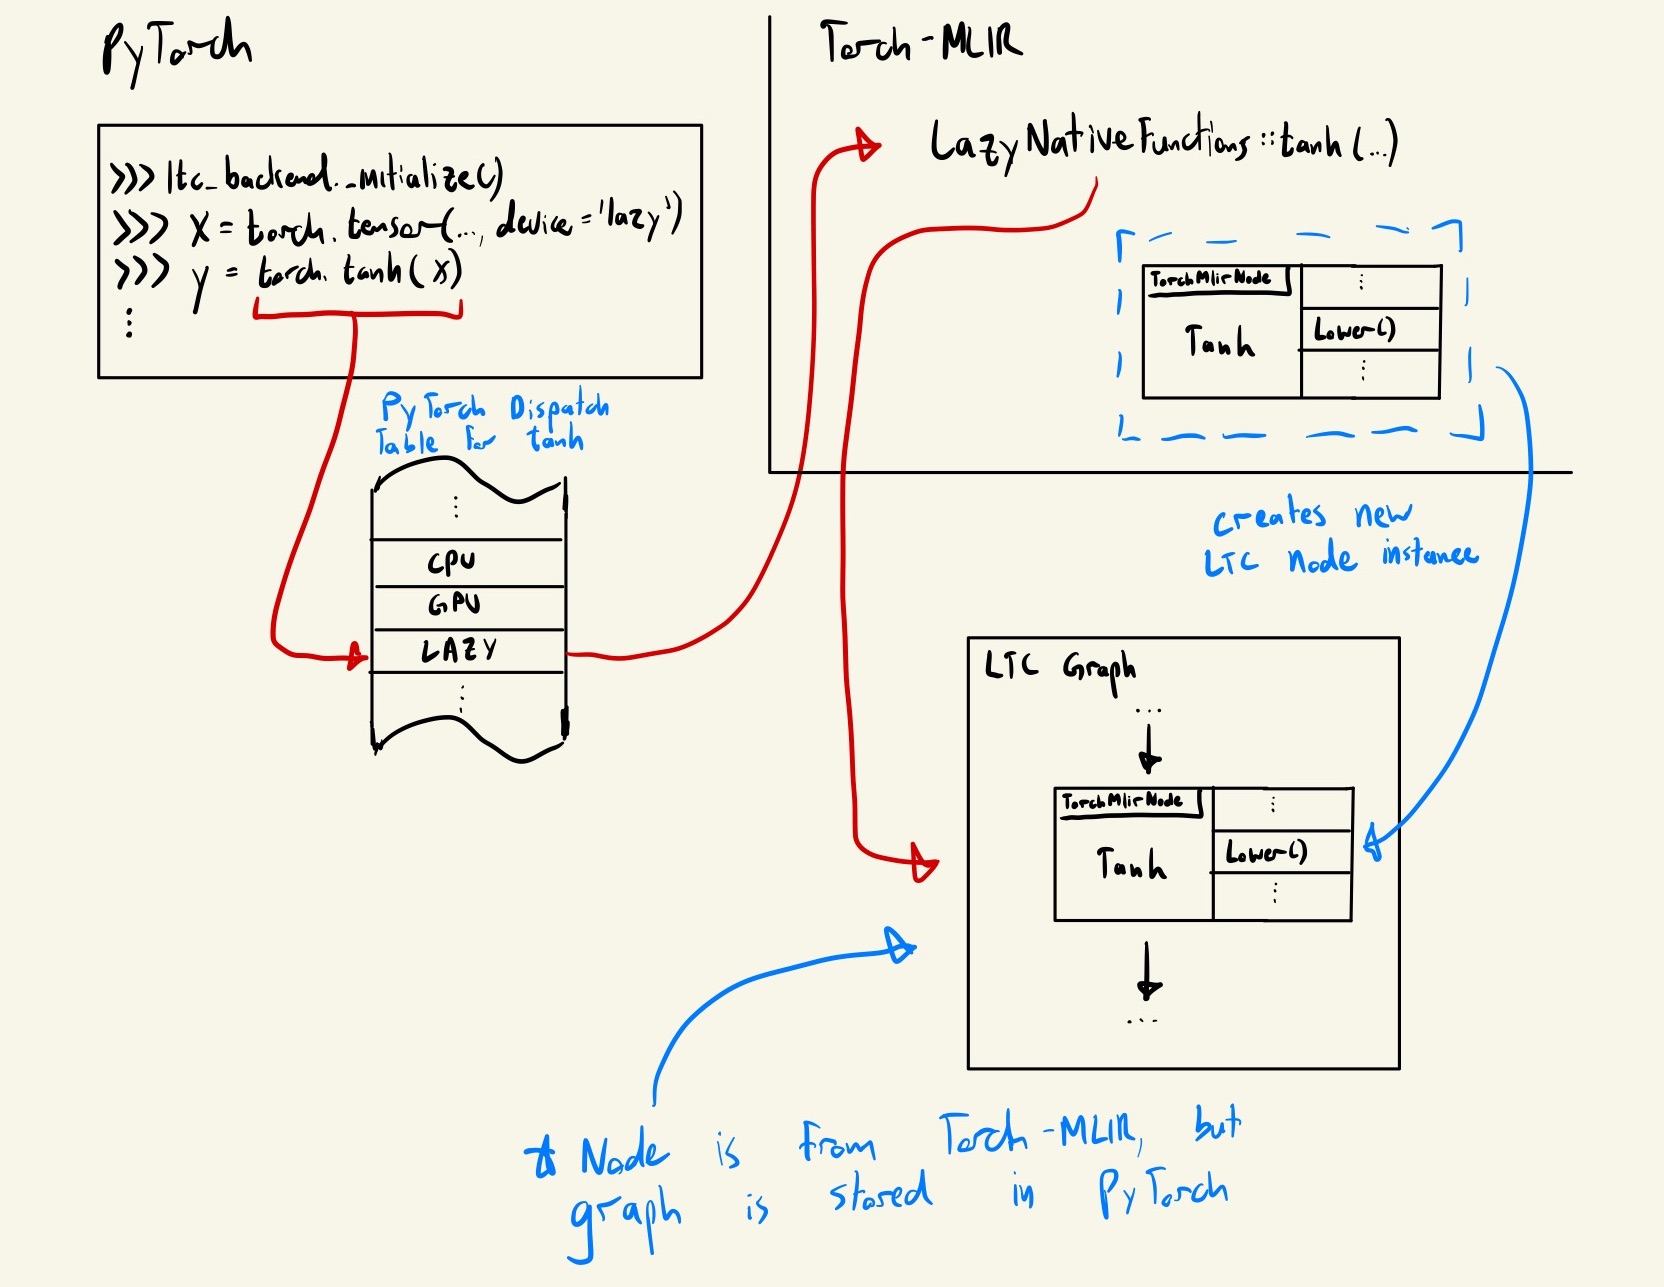 PyTorch
>>> ltc_backend._initialize()
>>> X = torch.tensor(..., device='lazy')
>>> y = torch.tanh(X)
⋮
PyTorch Dispatch
Table For tanh
⋮
CPU
GPU
LAZY
⋮
Torch-MLIR
LazyNativeFunctions::tanh(...)
TorchMlirNode
Tanh
⋮
Lower()
⋮
creates new
LTC Node instance
LTC Graph
...
TorchMlirNode
Tanh
⋮
Lower()
⋮
...
* Node is From Torch-MLIR, but
graph is stored in PyTorch